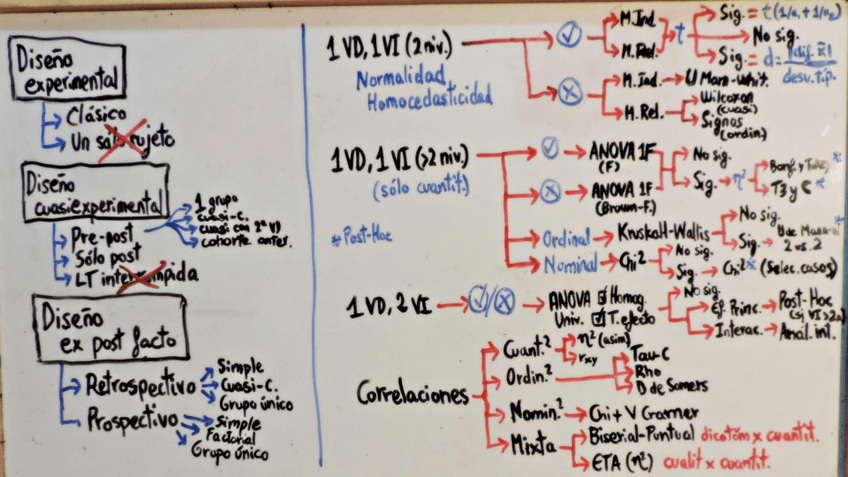 Diseño
experimental
Clásico
Un sólo sujeto
Diseño
cuasiexperimental
Pre-post
1 grupo
cuasi-c.
cuasi con 2ª VD
cohorte antes.
Sólo post
LT interrumpida
Diseño
ex post facto
Retrospectivo
Simple
Cuasi-C.
Grupo único
Prospectivo
Simple
Factorial
Grupo único
1 VD, 1 VI (2 niv.)
Normalidad
Homocedasticidad
M. Ind.
M. Rel.
t
Sig. = t (1/n₁ + 1/n₂)
No sig.
Sig. = d = |dif. x̄|
desv. típ.
M. Ind. U Mann-Whit.
M. Rel.
Wilcoxon
(cuasi)
Signos
(ordin.)
1 VD, 1 VI (>2 niv.)
(sólo cuantit.)
*Post-Hoc
ANOVA 1F
(F)
ANOVA 1F
(Brown-F.)
No sig.
Sig. η²
Bonf. y Tukey *
T3 y C *
Ordinal Kruskall-Wallis
No sig.
Sig.
U de Mann-W *
2 vs. 2
Nominal Chi²
No sig.
Sig. Chi² * (Selec. casos)
1 VD, 2 VI
ANOVA Homog.
Univ. T. efecto
No sig.
Ef. Princ. Post-Hoc
(si VI >2n)
Interac. Anál. int.
Correlaciones
Cuant.²
η² (asim)
rxy
Ordin.²
Tau-C
Rho
D de Somers
Nomin.² Chi + V Cramer
Mixta
Biserial-Puntual dicotóm x cuantit.
ETA (η²) cualit x cuantit.